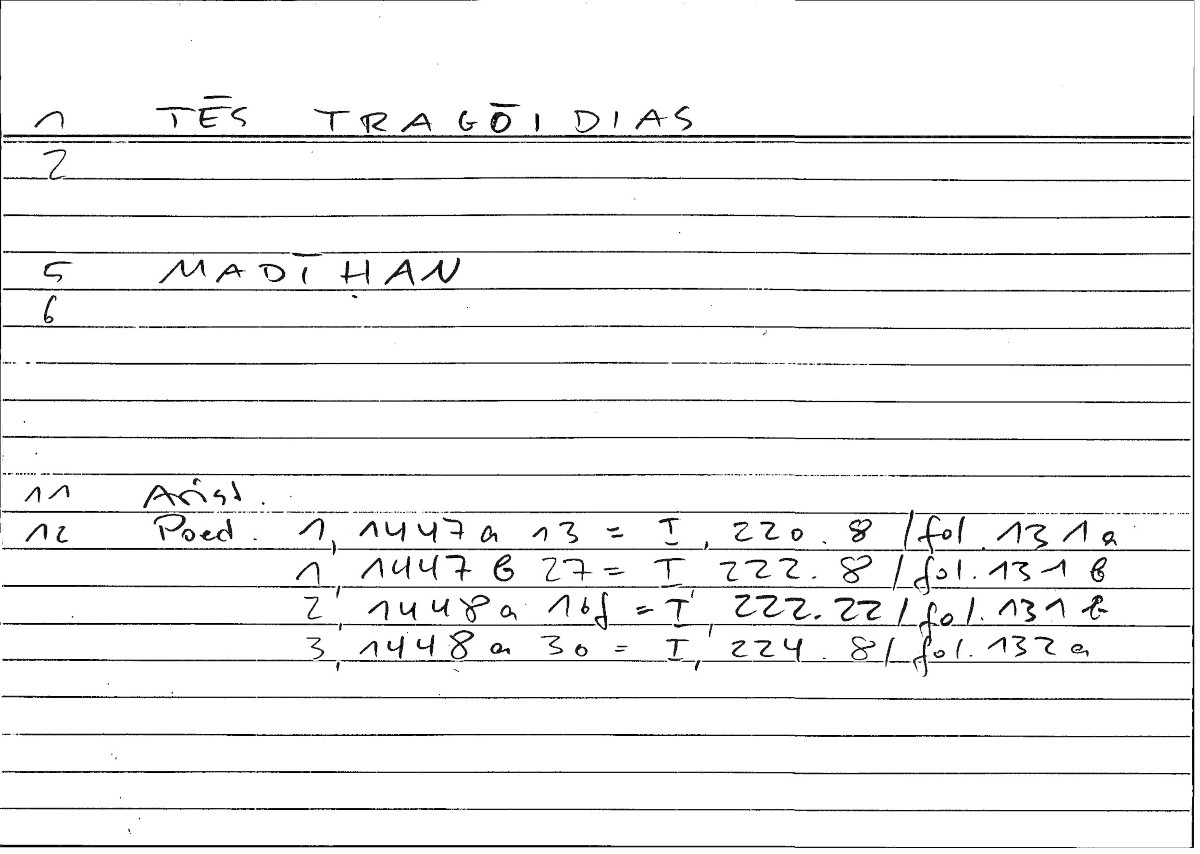 1 TĒS TRAGŌIDIAS
2
5 MADĪḤAN
6
11 Arist.
12 Poet. 1, 1447a 13 = I, 220.8 /fol. 131a
1, 1447b 27 = I, 222.8 /fol. 131b
2, 1448a 16f = I, 222.22/fol. 131b
3, 1448a 30 = I, 224.8/fol. 132a